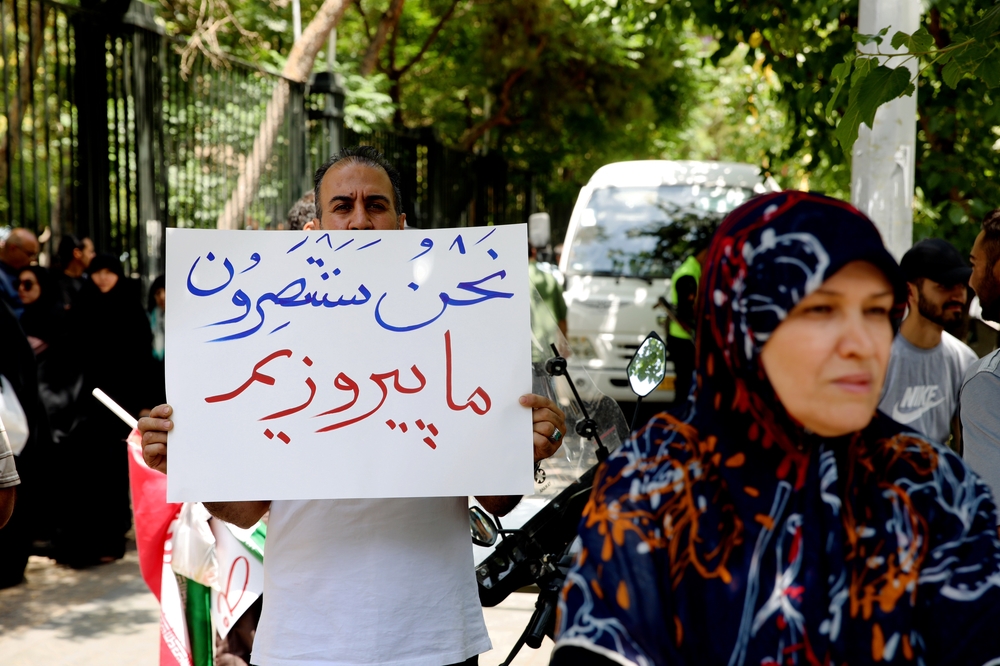 نَحْنُ سَنَنْتَصِرُون
ما پیروزیم
NIKE